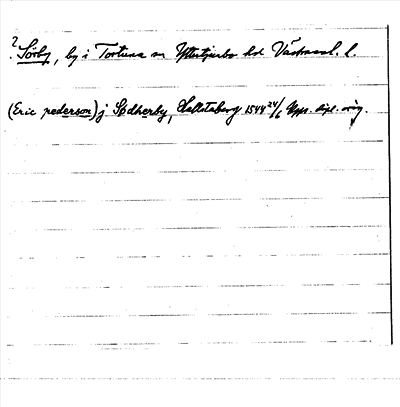 ? Sörby, by i Tortuna sn Yttertjurbo hd Västmanl. l.
(Eric pederson) j Södherby, Hallstaberg 1544 24/6 Upps. dipl. orig.